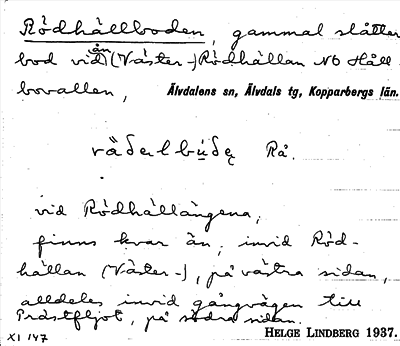 Rödhällboden, gammal slåtter
bod vid ån (Väster-) Rödhällan NO Håll
bovallen, Älvdalens sn, Älvdals tg, Kopparbergs län.
Rå.
vid Rödhällängena,
finns kvar än; invid Röd-
hällan (Väster-), på västra sidan,
alldeles invid gångvägen till
Prästfljot, på södra sidan.
HELGE LINDBERG 1937.
XI 147